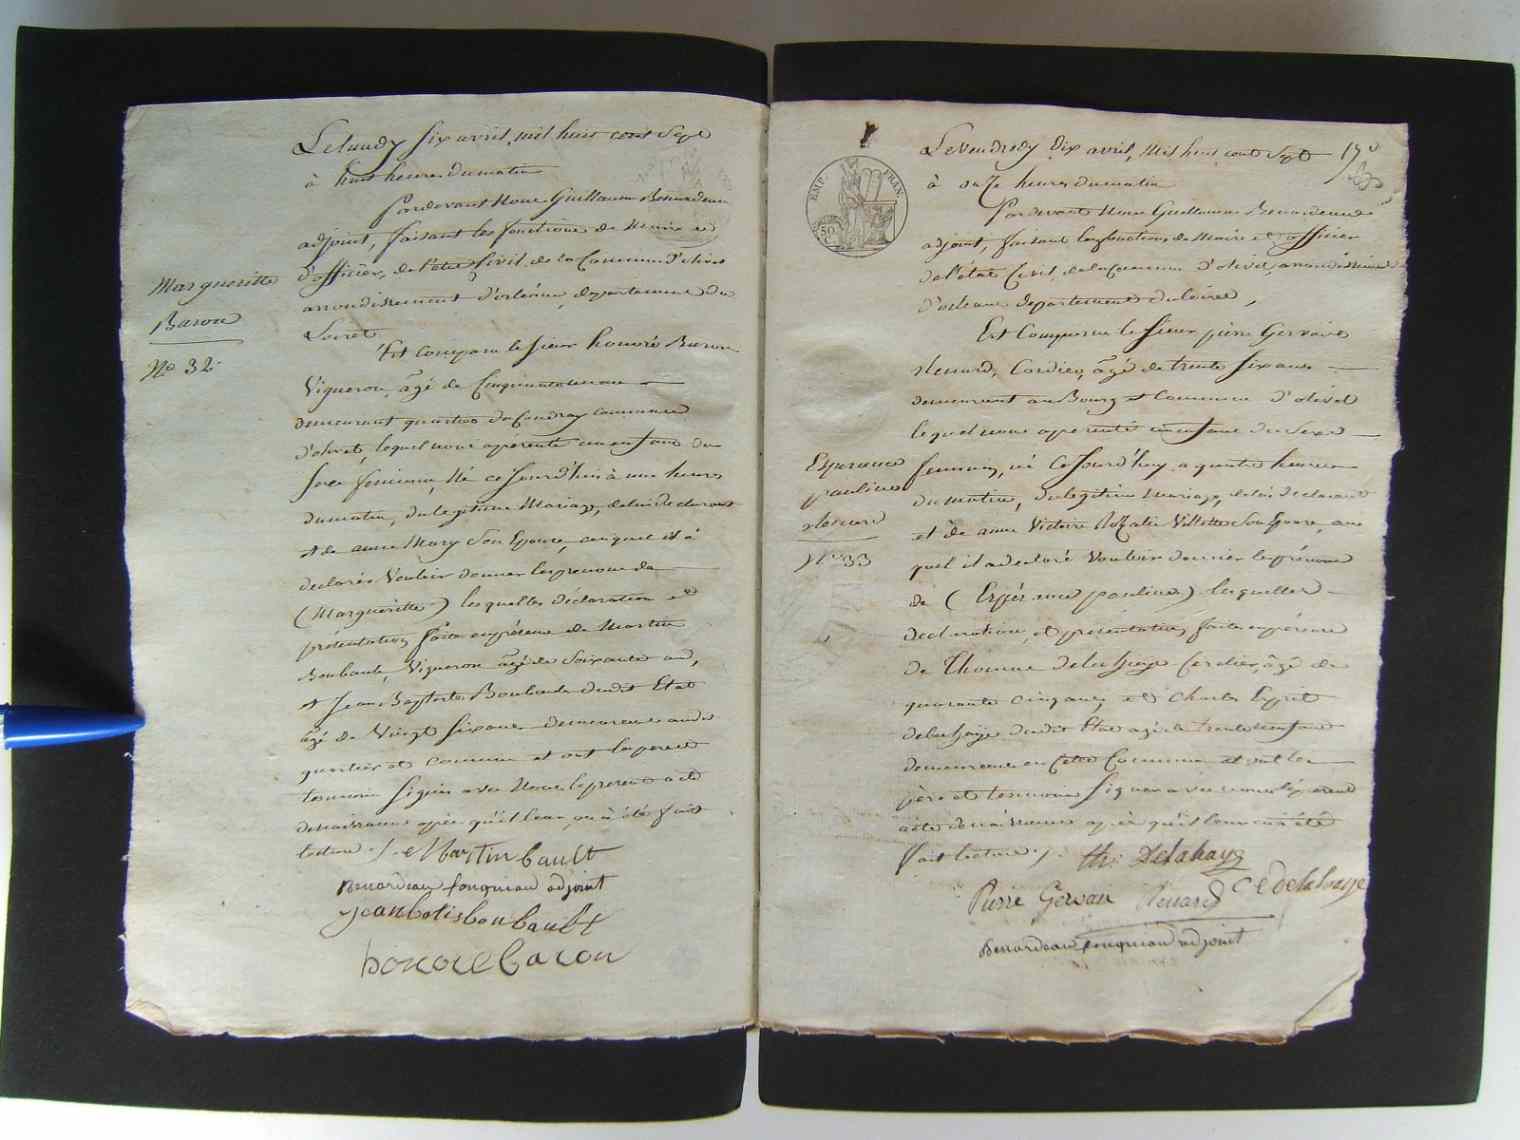 Le lundy six avril, mil huit cent Sept
à huit heures du matin
Pardevant Nous Guillaume Benardeau
adjoint, faisant les fonctions de Maire et
d'officier, de l'état Civil, de la Commune d'olivet
arrondissement d'orléans, departement du
Loiret
Est comparu le sieur honoré Baron
Vigneron, âgé de Cinquante
demeurant quartier du Coudray commune
d'olivet, lequel nous a presenté un enfant du
sexe feminin, Né ce jourd'hui à une heure
du matin, du legitime Mariage, de lui declarant
et de anne Mary Son Epouse, auquel il à
declaré Vouloir donner les prenoms de
(Margueritte) les quelles declaration et
présentation faite en présence de Martin
Boubault, Vigneron âgé de Soixante ans,
et Jean Baptiste Boubault dudit Etat
âgé de Vingt Six ans demeurant audit
quartier et commune et ont les pere et
temoins Signés avec Nous le present acte
de naissance après qu'il leur en à été fait
lecture ./.
Martin bault
Benardeau fouqniau adjoint
jean batis boubault
honore baron
Margueritte
Baron
No 32
Le Vendredy Dix avril, Mil huit cent Sept
17e
à onze heures du matin
Pardevant Nous Guillaume Benardeau
adjoint, faisant les fonctions de Maire et officier
de l'état Civil, de la Commune d'olivet, arrondissement
d'orleans departement du Loiret,
Est Comparu le Sieur pierre Gervais
Renard, Cordier, âgé de trente Six ans
demeurant au Bourg et Commune d'olivet
lequel nous a presenté un enfant du Sexe
feminin, né Ce Jourd'huy a quatre heures
du matin, du legitime Mariage, de lui declarant
et de anne Victoire Rozalie Villette Son Epouse, au
quel il a declaré Vouloir donner les prénoms
de (Espérance pauline) lesquelles
declaration, et présentation faite en présence
de Thomas delahaye Cordier, âgé de
quarante cinq ans, et Charles Esprit
delahaye dudit Etat agé de trente ans
demeurant en Cette Commune et ont les
père et temoins Signés avec nous le présent
acte de naissance après qu'il leur en a été
fait lecture ./.
th: Delahaye
Pierre Gervais Renard
C E Delahaye
Benardeau fouqniau adjoint
Esperance
pauline
Renard
No 33
EMP. FRAN.
50